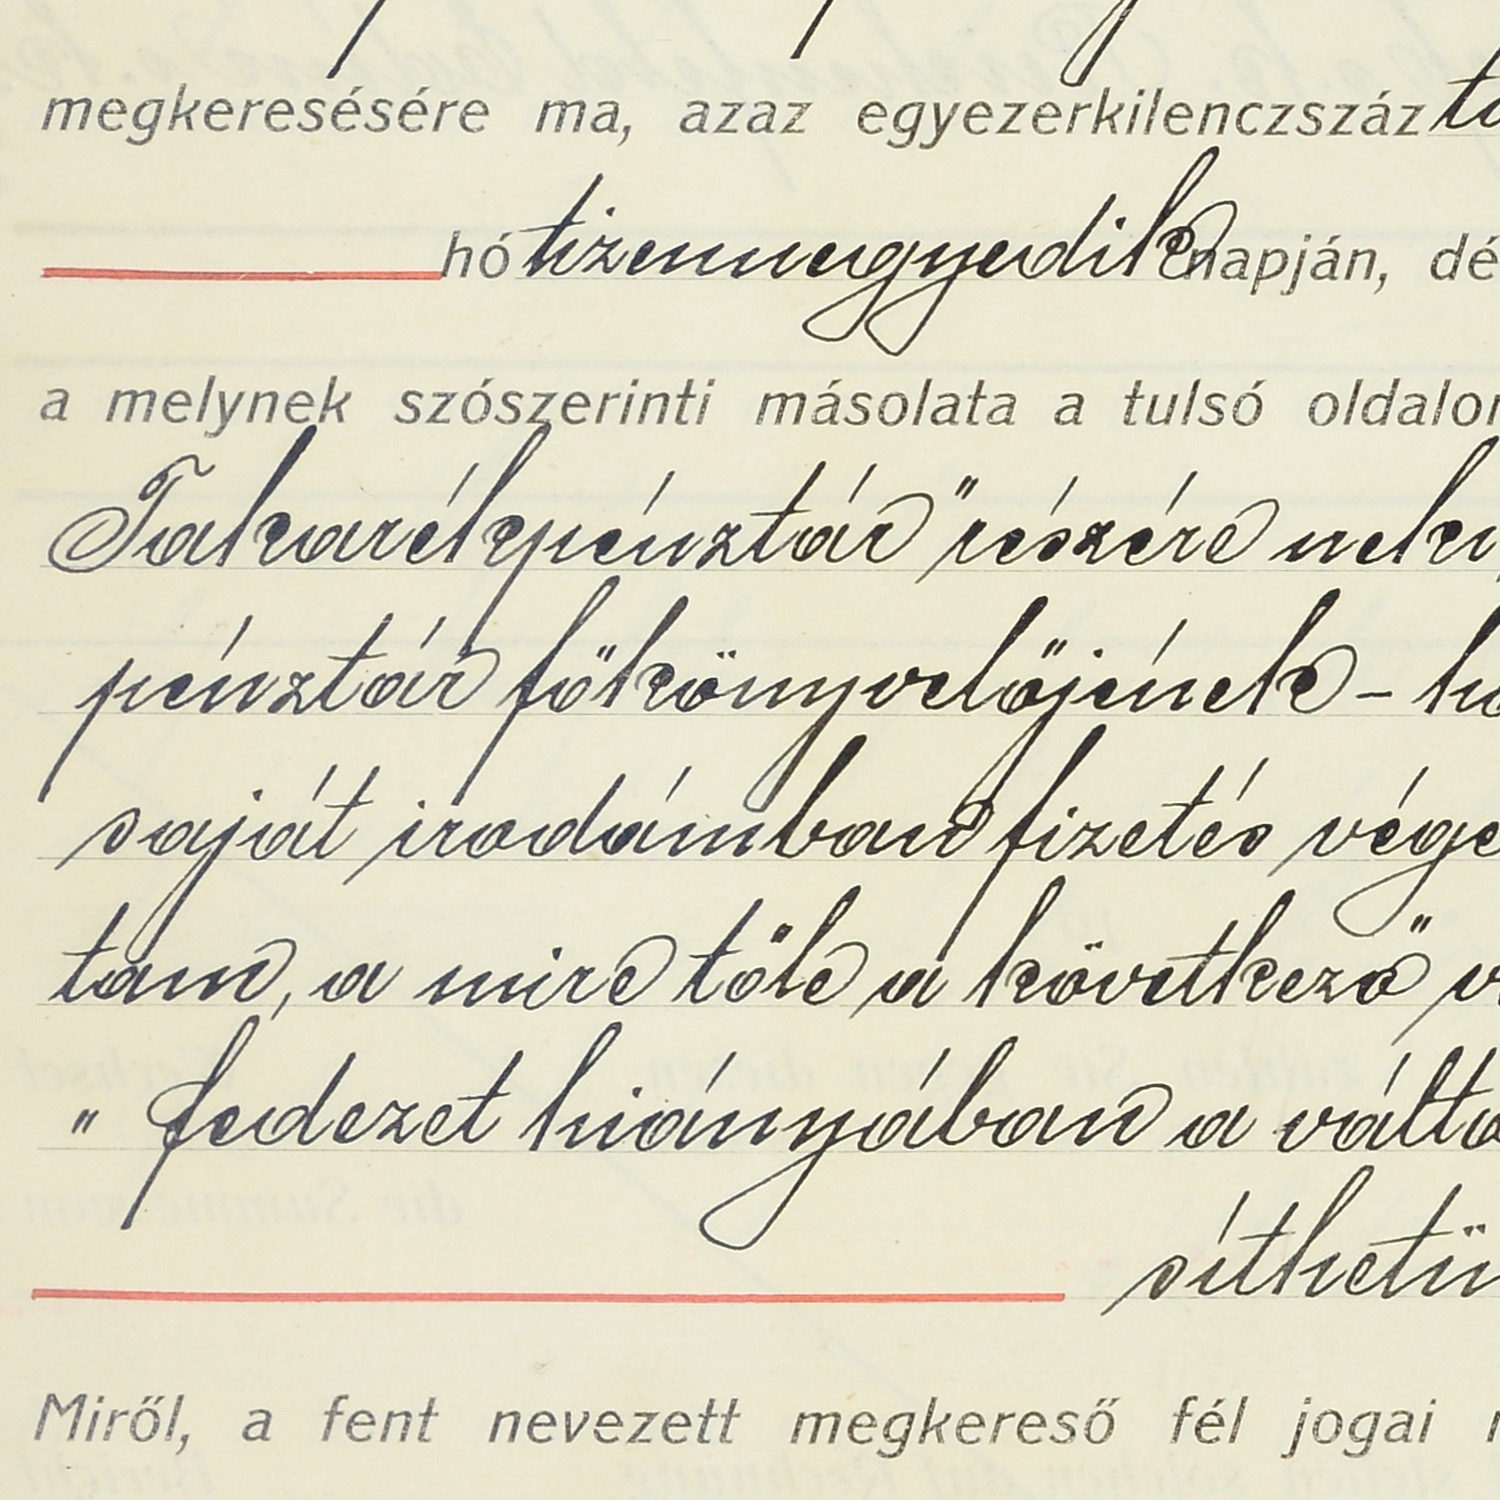 megkeresésére ma, azaz egyezerkilenczszáz
hó tizennegyedik napján, dé
a melynek szószerinti másolata a tulsó oldalon
Takarékpénztár" részére nek
pénztár főkönyvelőjének –
saját irodámban fizetés vége
tam, a mire tőle a következő
" fedezet hiányában a vált
síthetü
Miről, a fent nevezett megkereső fél jogai